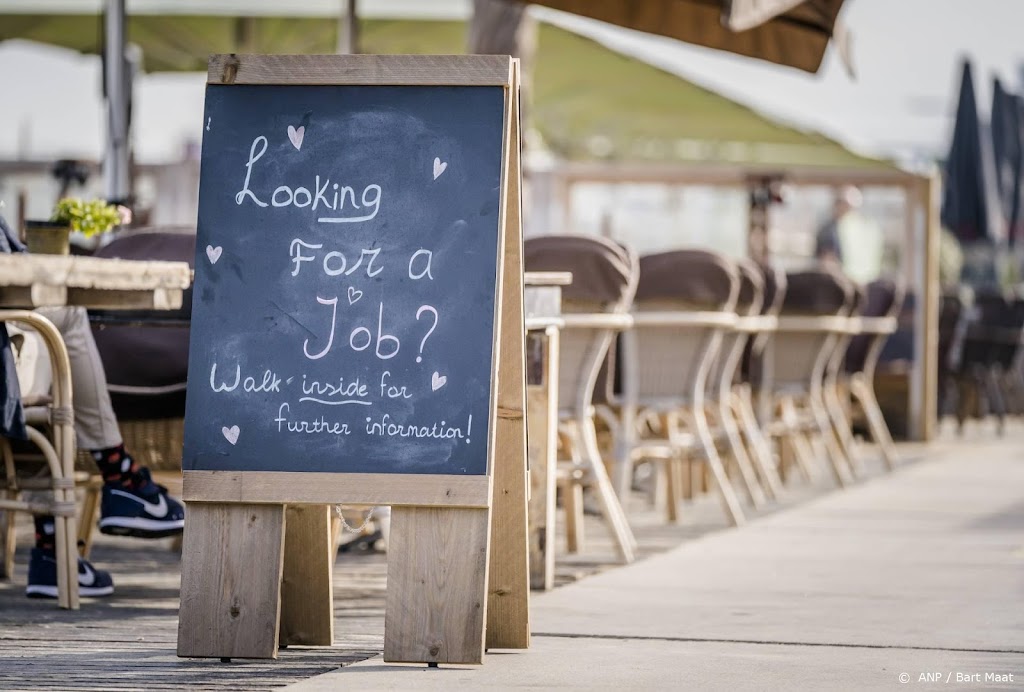 Looking
For a
Job?
Walk inside for
further information!
© ANP / Bart Maat